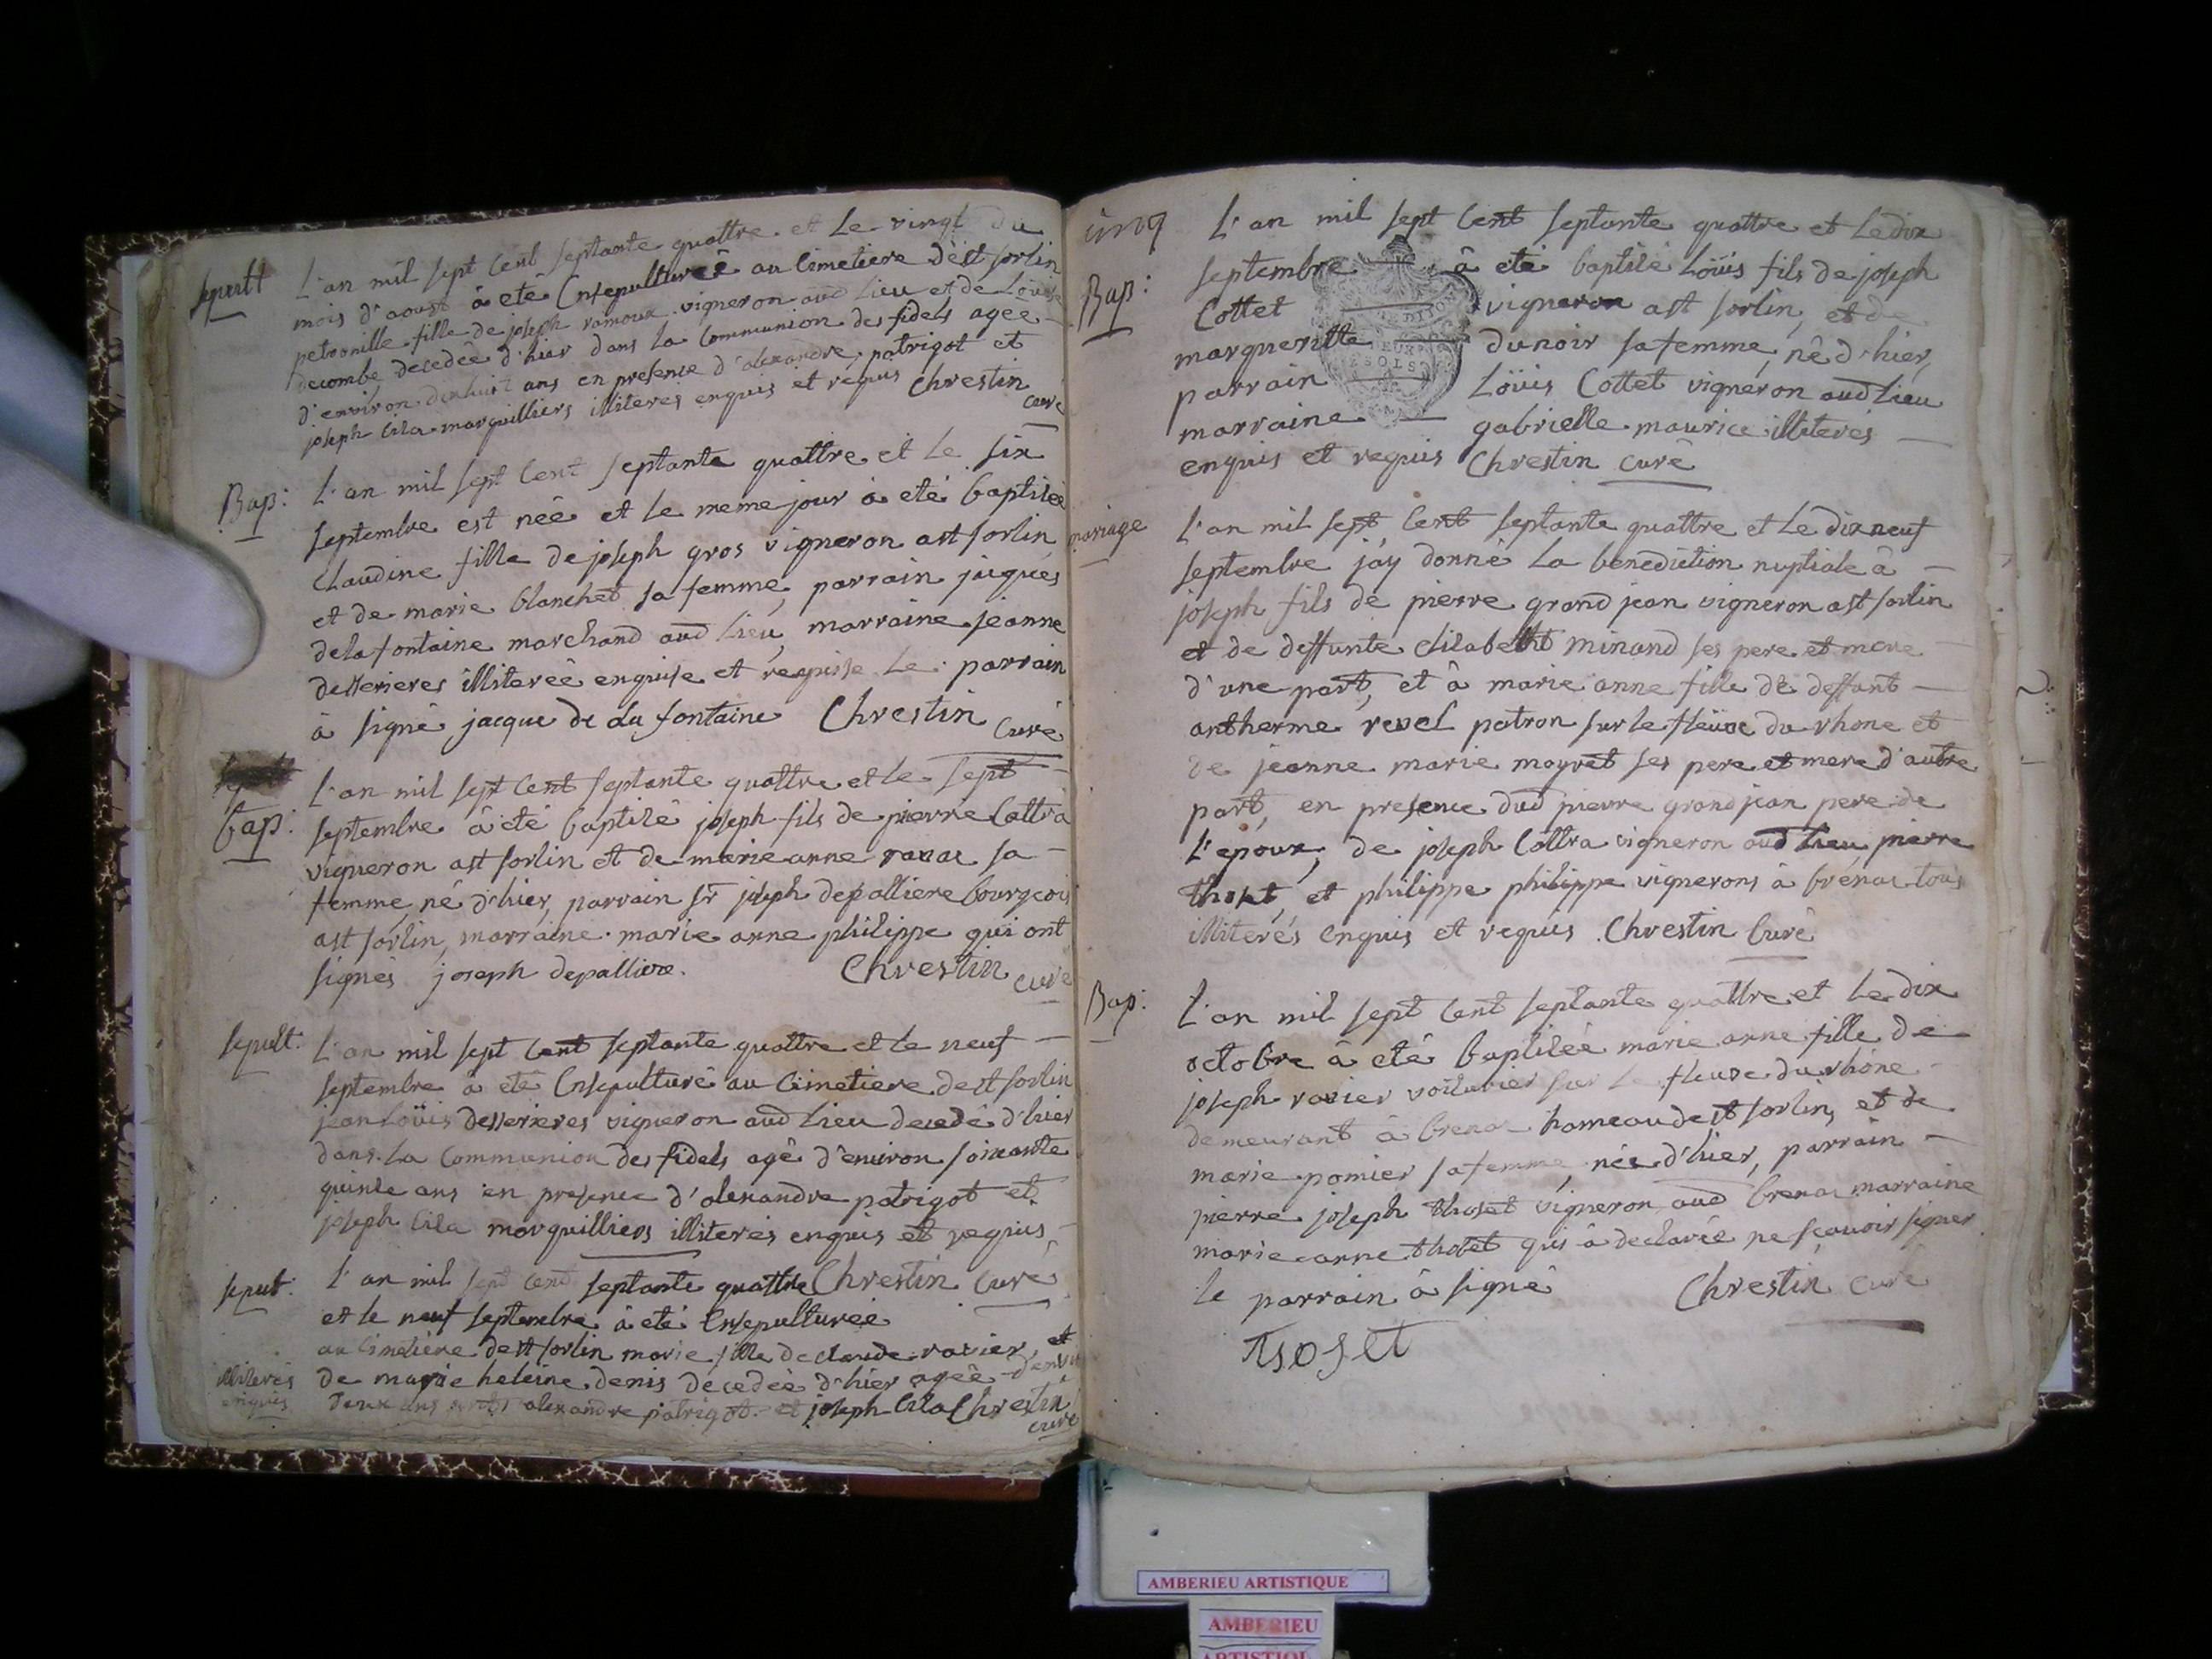 sepultt
L'an mil sept Cent septante quattre et Le vingt du
mois d'aoust à eté Ensepulturée au Cimetiere de st sorlin
petronille fille de joseph ramoux vigneron aud Lieu et de Louise
decombe decedée d'hier dans la Communion des fidels agee
d'environ dixhuit ans en presence d'alexandre patrigot et
joseph Cila marguilliers illiterés enquis et requis Chrestin
curé
Bap:
L'an mil sept Cent septante quattre et le six
septembre est née et le meme jour à eté baptisée
Claudine fille de joseph gros vigneron a st sorlin
et de marie blanchet sa femme, parrain jacques
delafontaine marchand aud Lieu, marraine jeanne
desserieres illiterée enquise et requise le parrain
à signé jacque de la fontaine Chrestin
Curé
Bap:
L'an mil sept Cent septante quattre et le sept
septembre à eté baptisé joseph fils de pierre Cattra
vigneron a st sorlin et de marie anne ravar sa
femme, né d'hier, parrain sr joseph depalliere bourgeois
a st sorlin, marraine marie anne philippe qui ont
signés joseph depalliere. Chrestin
curé
sepult:
L'an mil sept Cent septante quattre et le neuf
septembre à eté Ensepulturé au Cimetiere de st sorlin
jean Loüis desserieres vigneron aud Lieu decedé d'hier
dans La Communion des fidels agé d'environ soixante
quinse ans en presence d'alexandre patrigot et
joseph Cila marguilliers illiterés enquis et requis
sepult:
L'an mil sept Cent septante quattre Chrestin Curé
et le neuf septembre à eté Ensepulturée
au Cimetiere de st sorlin marie fille de claude ravier, et
de marie heleine denis decedée d'hier agée d'envi
illiterés enquis
deux ans alexandre patrigot et joseph Cila Chrestin
curé
cinq
L'an mil sept Cent septante quattre et Le dix
Bap:
septembre à eté baptisé Loüis fils de joseph
Cottet vigneron a st sorlin, et de
margueritte dunoir sa femme, né d'hier,
parrain Loüis Cottet vigneron aud Lieu
marraine gabrielle maurice illiterés
enquis et requis Chrestin curé
mariage
L'an mil sept Cent septante quattre et Le dixneuf
septembre j'ay donné La benediction nuptiale à
joseph fils de pierre grand jean vigneron a st sorlin
et de deffunte elisabetht minand ses pere et mere
d'une part, et à marie anne fille de deffunt
antherme revel patron sur le fleüve du rhone et
de jeanne marie mayret ses pere et mere d'autre
part, en presence dud pierre grand jean pere de
L'epoux, de joseph Cottra vigneron aud Lieu pierre
thoset, et philippe philippe vignerons à brénas tous
illiterés enquis et requis. Chrestin Curé
Bap:
L'an mil sept Cent septante quattre et Le dix
octobre à eté baptisée marie anne fille de
joseph ravier voiturier sur le fleuve du rhône
demeurant à brenas hameau de st sorlin, et de
marie pomier sa femme, née d'hier, parrain
pierre joseph thoset vigneron aud brenas marraine
marie anne thoset qui à declarée ne sçavoir signer
le parrain à signé Chrestin curé
Tsoset
AMBERIEU ARTISTIQUE
AMBERIEU
ARTISTIQUE